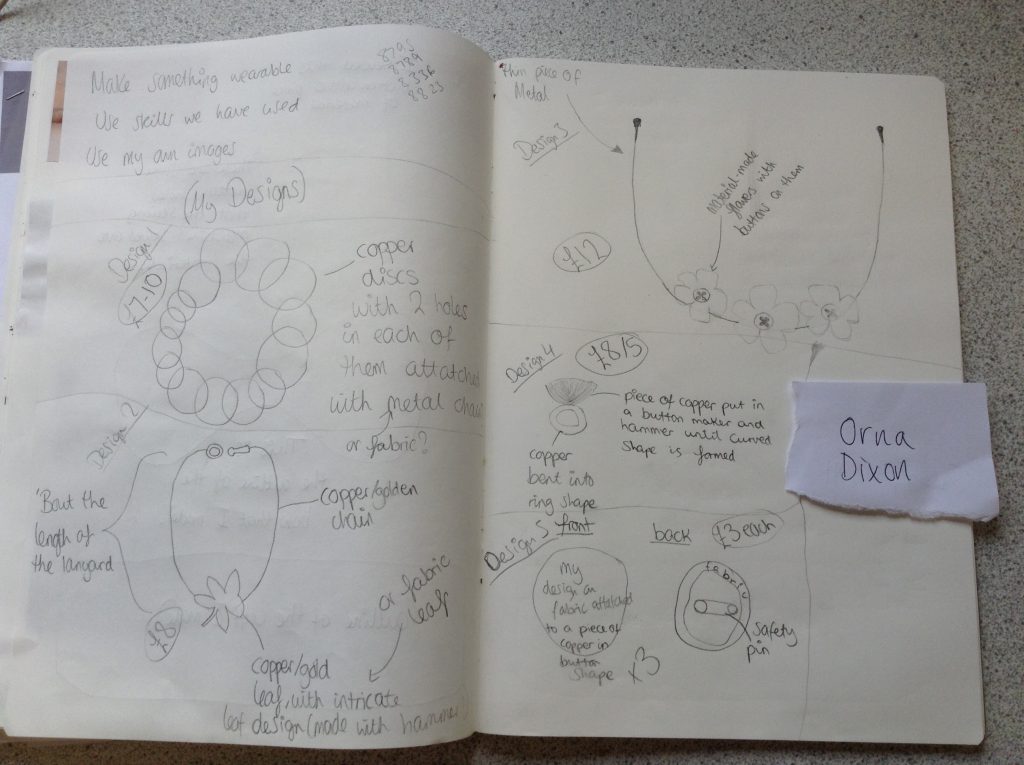 Make something wearable
Use skills we have used
Use my own images
8795
8789
8336
8825
(My Designs)
Design 1
£7-10
copper
discs
with 2 holes
in each of
them attatched
with metal chain
or fabric?
Design 2
'Bout the
length of
the lanyard
copper/golden
chain
£8
or fabric
leaf
copper/gold
leaf, with intricate
leaf design (made with hammer)
thin piece of
Metal
Design 3
material-made
flowers with
buttons on them
£12
Design 4
£8/5
piece of copper put in
a button maker and
hammer until curved
shape is formed
copper
bent into
ring shape
Design 5
front
back
£3 each
my
design on
fabric attatched
to a piece of
copper in
button
shape
x3
fabric
safety
pin
Orna
Dixon